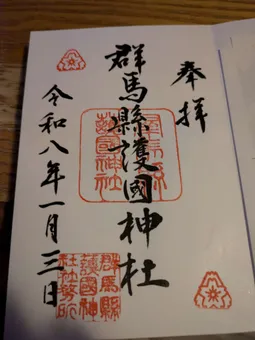 奉拝
群馬縣護國神社
令和八年一月三日
群馬縣
護國神社
群馬縣
護國神
社社務所